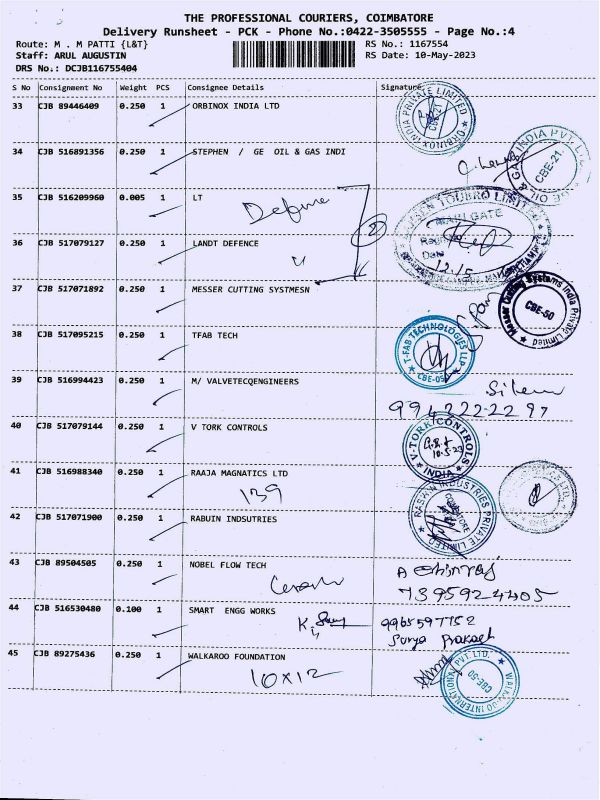 THE PROFESSIONAL COURIERS, COIMBATORE
Delivery Runsheet - PCK - Phone No.:0422-3505555 - Page No.:4
Route: M . M PATTI {L&T}
RS No.: 1167554
Staff: ARUL AUGUSTIN
RS Date: 10-May-2023
DRS No.: DCJB116755404
S No Consignment No Weight PCS Consignee Details Signature
33 CJB 89446409 0.250 1 ORBINOX INDIA LTD
ORBINOX INDIA PRIVATE LIMITED
34 CJB 516891356 0.250 1 STEPHEN / GE OIL & GAS INDI
GE OIL & GAS INDIA PVT LTD
CBE-21
35 CJB 516209960 0.005 1 LT
Defence
TOUBRO LIMITED
GATE
Date
12.15
36 CJB 517079127 0.250 1 LANDT DEFENCE
37 CJB 517071892 0.250 1 MESSER CUTTING SYSTMESN
Messer Cutting Systems India Private Limited
CBE-50
38 CJB 517095215 0.250 1 TFAB TECH
T-FAB TECHNOLOGIES LLP
CBE-05
39 CJB 516994423 0.250 1 M/ VALVETECQENGINEERS
40 CJB 517079144 0.250 1 V TORK CONTROLS
V-TORK CONTROLS
10.5.23
INDIA
41 CJB 516988340 0.250 1 RAAJA MAGNATICS LTD
139
42 CJB 517071900 0.250 1 RABUIN INDSUTRIES
INDUSTRIES PRIVATE LIMITED
43 CJB 89504505 0.250 1 NOBEL FLOW TECH
7395924405
44 CJB 516530480 0.100 1 SMART ENGG WORKS
9965597752
Surya Prakash
45 CJB 89275436 0.250 1 WALKAROO FOUNDATION
10x12
WALKAROO INTERNATIONAL PVT. LTD.
CBE-50